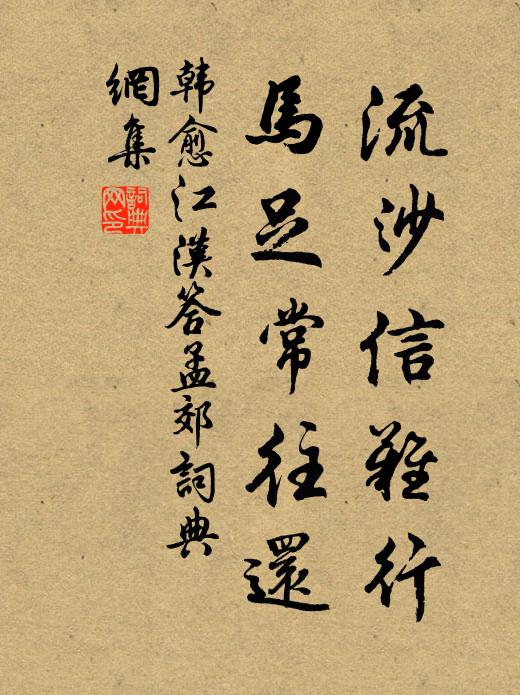 流沙信難行
馬足常往還
韓愈江漢答孟郊詞典
網集
詞典
网印